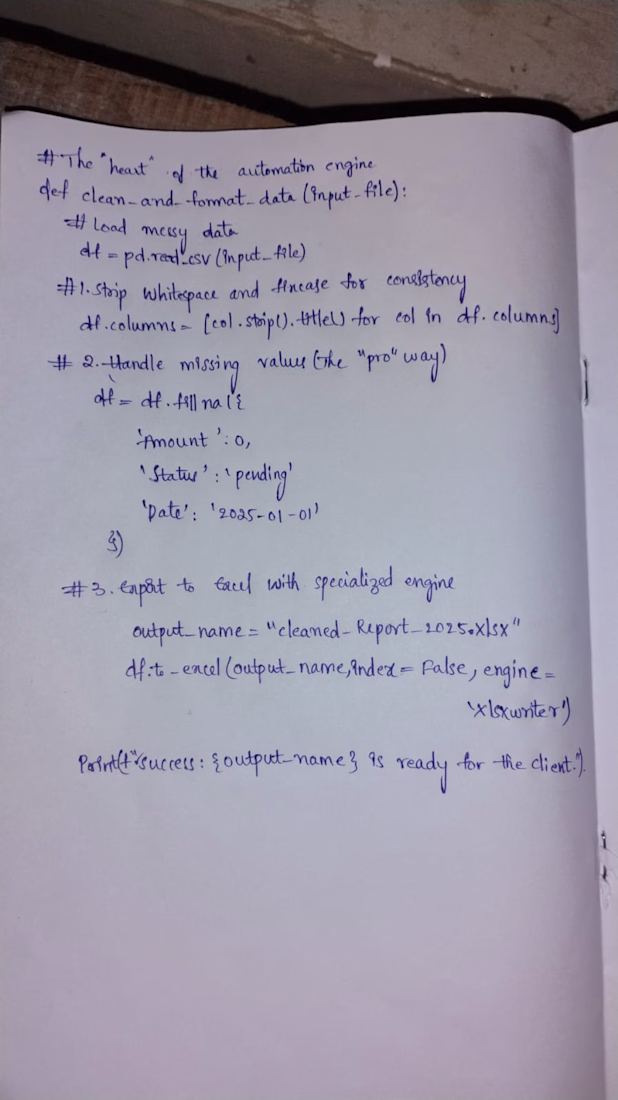 # The "heart" of the automation engine
def clean_and_format_data (input_file):
# Load messy data
df = pd.read_csv (input_file)
#1. Strip whitespace and fincase for consistency
df.columns = [col.strip().title() for col in df.columns]
# 2. Handle missing values (the "pro" way)
df = df.fillna({
'Amount': 0,
'Status': 'pending'
'Date': '2025-01-01'
})
#3. Export to Excel with specialized engine
output_name = "cleaned_Report_2025.xlsx"
df.to_excel (output_name, index = False, engine =
'xlsxwriter')
Print(f"success: {output_name} is ready for the client.").